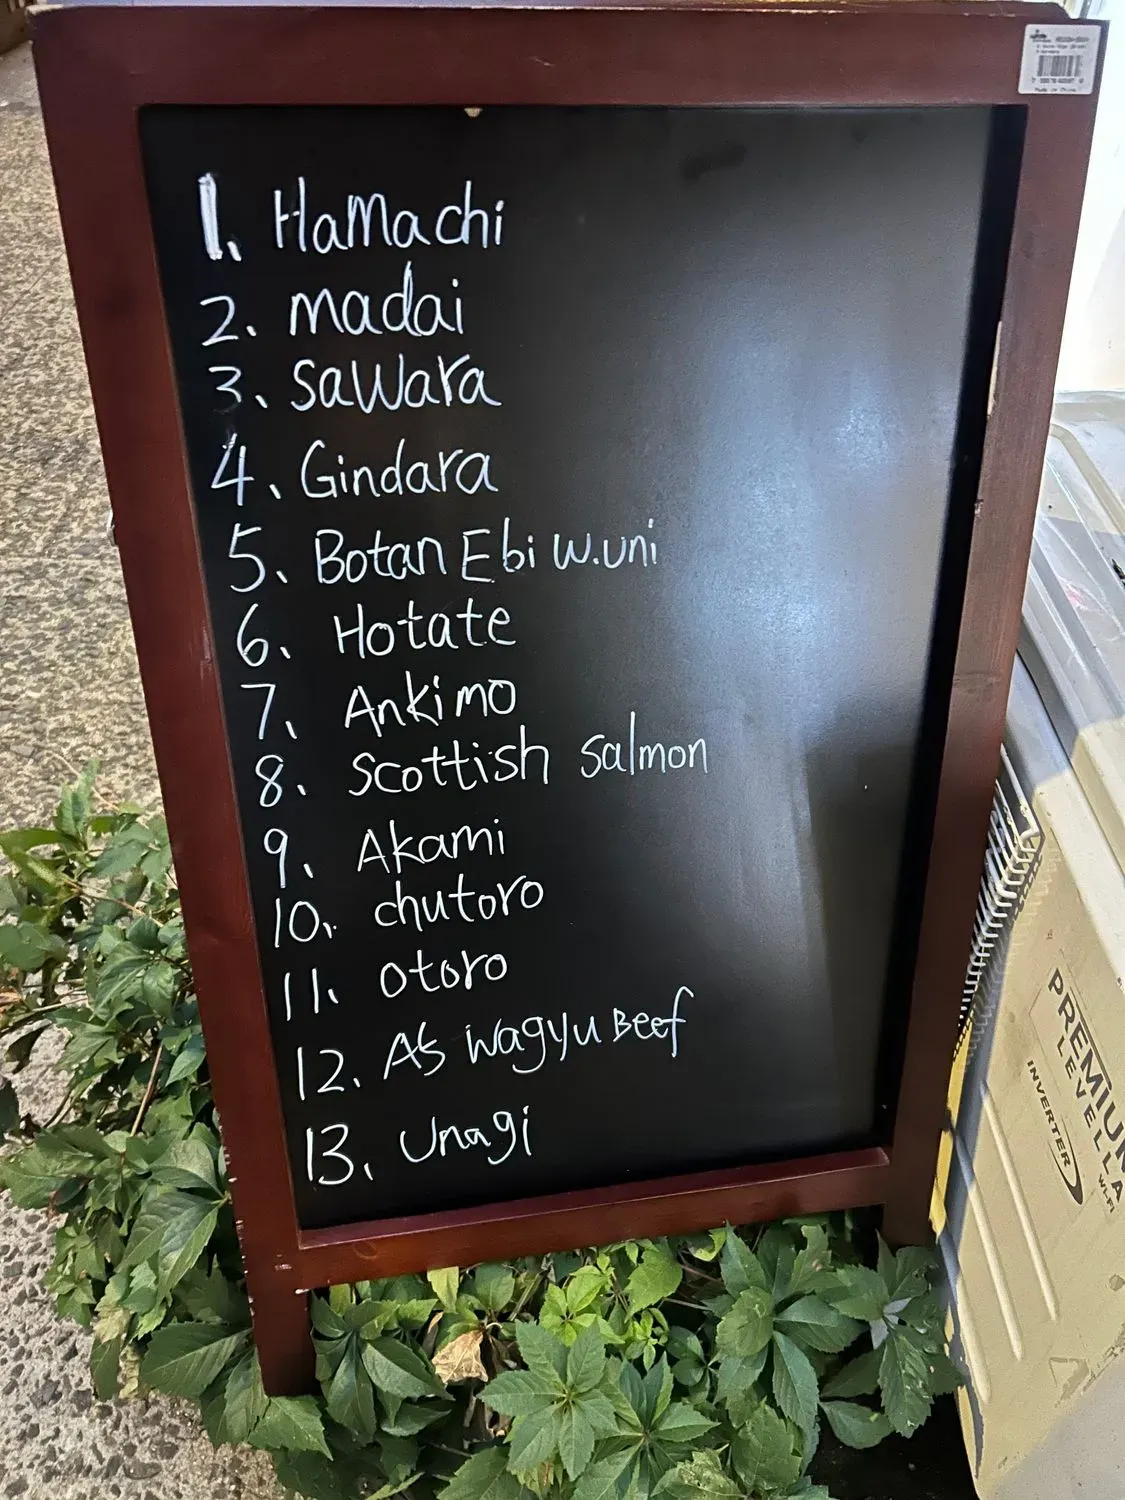 1. Hamachi
2. madai
3. Sawara
4. Gindara
5. Botan Ebi w.uni
6. Hotate
7. Ankimo
8. Scottish Salmon
9. Akami
10. chutoro
11. otoro
12. A5 Wagyu Beef
13. Unagi
PREMIUM
LEVELLA
INVERTER
WI-FI